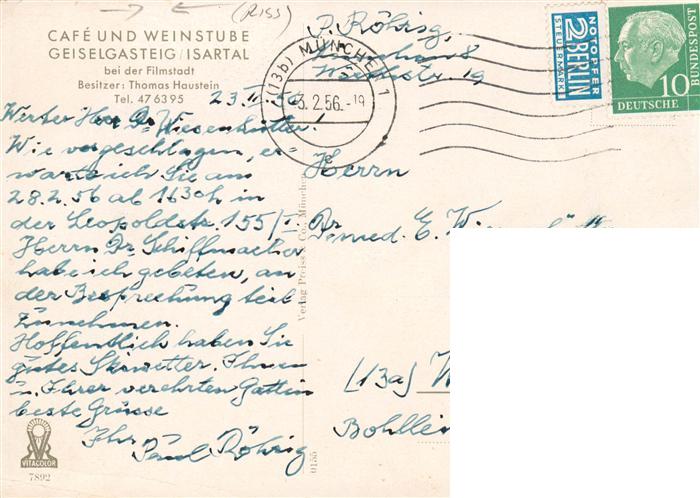 (RISS)
CAFÉ UND WEINSTUBE
GEISELGASTEIG / ISARTAL
bei der Filmstadt
Besitzer: Thomas Haustein
Tel. 47 63 95
23.II.56
Werter Herr Dr. Wiesenhütter!
Wie vorgeschlagen, er-
warte ich Sie am
28.2.56 ab 1630h in
der Leopoldstr. 155/I
Herrn Dr. Schiffmacher
habe ich gebeten, an
der Besprechung teil
zunehmen.
Hoffentlich haben Sie
gutes Skiwetter. Ihnen
u. Ihrer verehrten Gattin
beste Grüsse
Ihr
Paul Röhrig
VITACOLOR
7892
Verlag Preiss & Co., München
0155
P. Röhrig,
München 8
19
(13b) MÜNCHEN 1
3.2.56.-19
NOTOPFER
2 BERLIN
STEUERMARKE
10
DEUTSCHE
BUNDESPOST
Herrn
Dr. med. E.
(13a) W
Bohllei